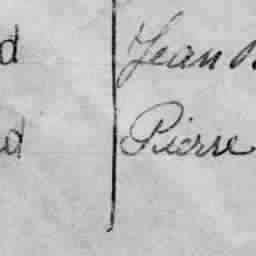 d Jean
d Pierre